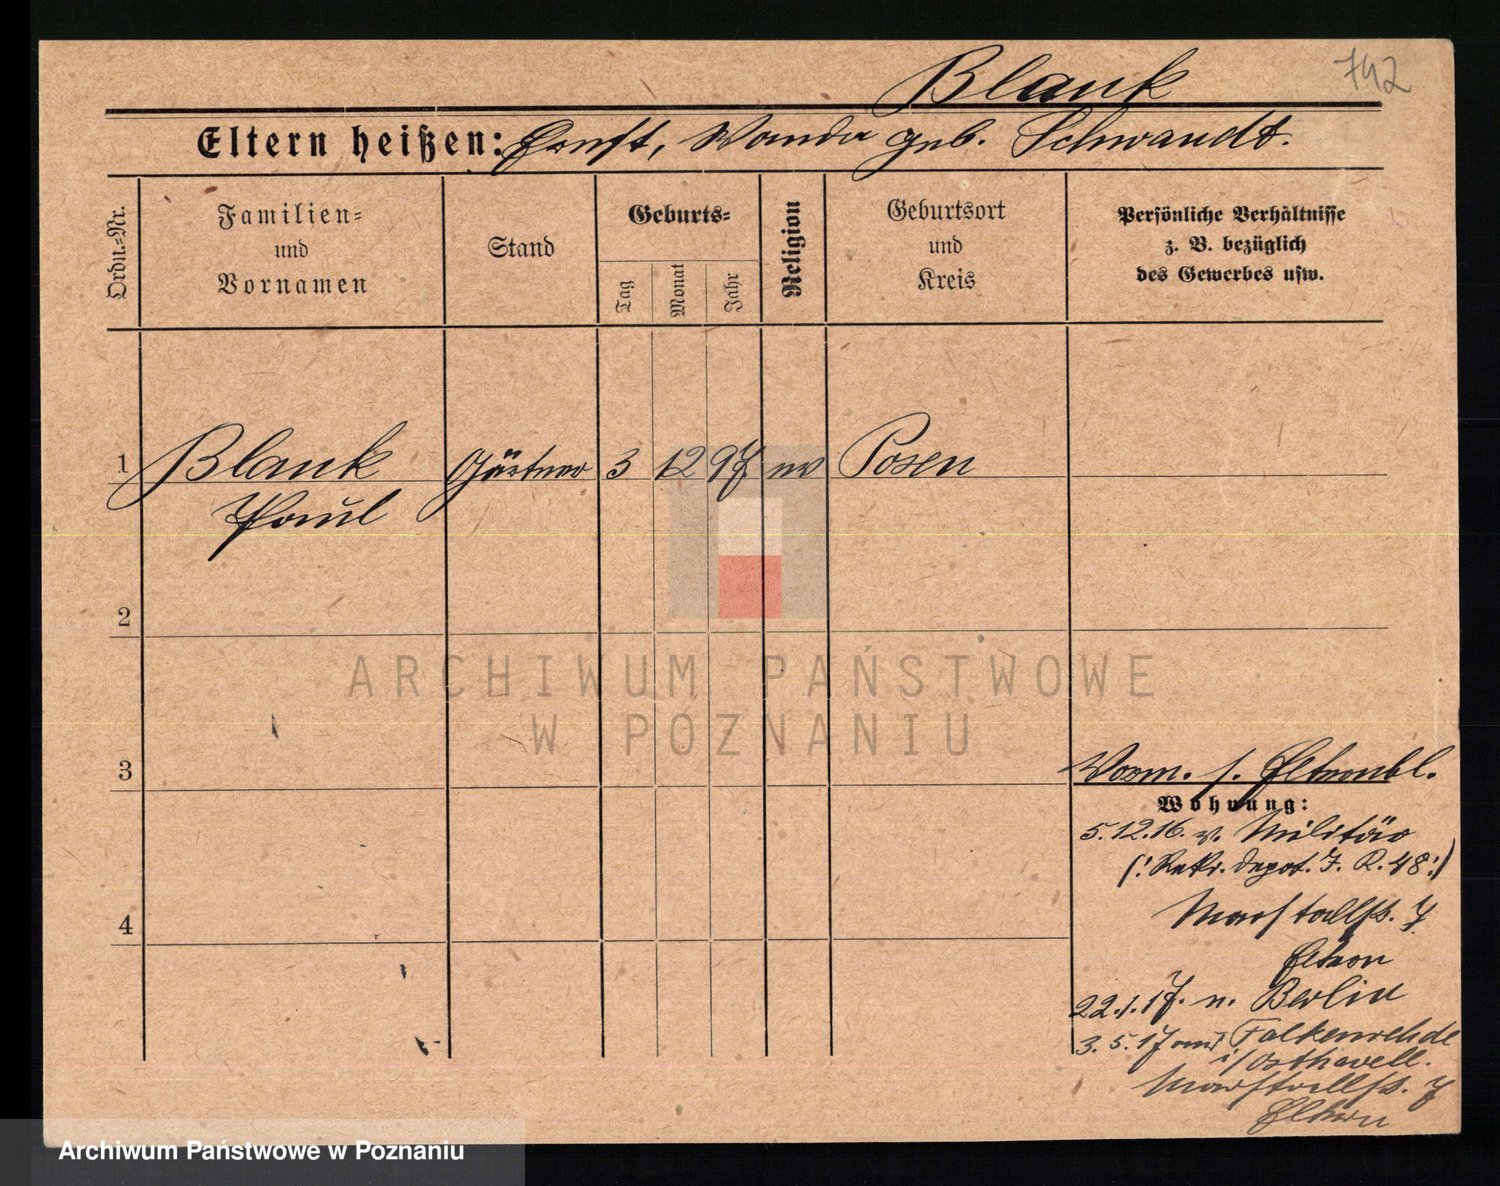 Blank
742
Eltern heißen: Ernst, Wanda geb. Schwandt.
Ordn.-Nr.
Familien-
und
Vornamen
Stand
Geburts-
Tag
Monat
Jahr
Religion
Geburtsort
und
Kreis
Persönliche Verhältnisse
z. B. bezüglich
des Gewerbes usw.
1 Blank Gärtner 3 12 97 ev Posen
Paul
2
ARCHIWUM PAŃSTWOWE
W POZNANIU
3
Vorm. s. Elternbl.
Wohnung:
5.12.16. v. Militär
(: Rekr. depot. J. R. 48 :)
4
Marstallstr. 7
Eltern
22.1.17. n. Berlin
3.5.17 aus Falkenrehde
i/Osthavell.
Marstallstr. 7
Eltern
Archiwum Państwowe w Poznaniu